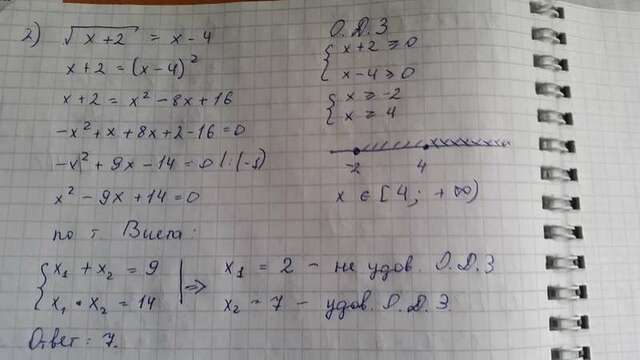 2) √x+2 = x-4
x+2 = (x-4)²
x+2 = x² - 8x + 16
-x² + x + 8x + 2 - 16 = 0
-x² + 9x - 14 = 0 | : (-1)
x² - 9x + 14 = 0
по т. Виета:
{ x₁ + x₂ = 9
{ x₁ • x₂ = 14 | ⇒
x₁ = 2 - не удов. О.Д.З
x₂ = 7 - удов. О.Д.З.
Ответ: 7.
О.Д.З
{ x+2 ≥ 0
{ x-4 ≥ 0
{ x ≥ -2
{ x ≥ 4
-2 4
x ∈ [4; +∞)